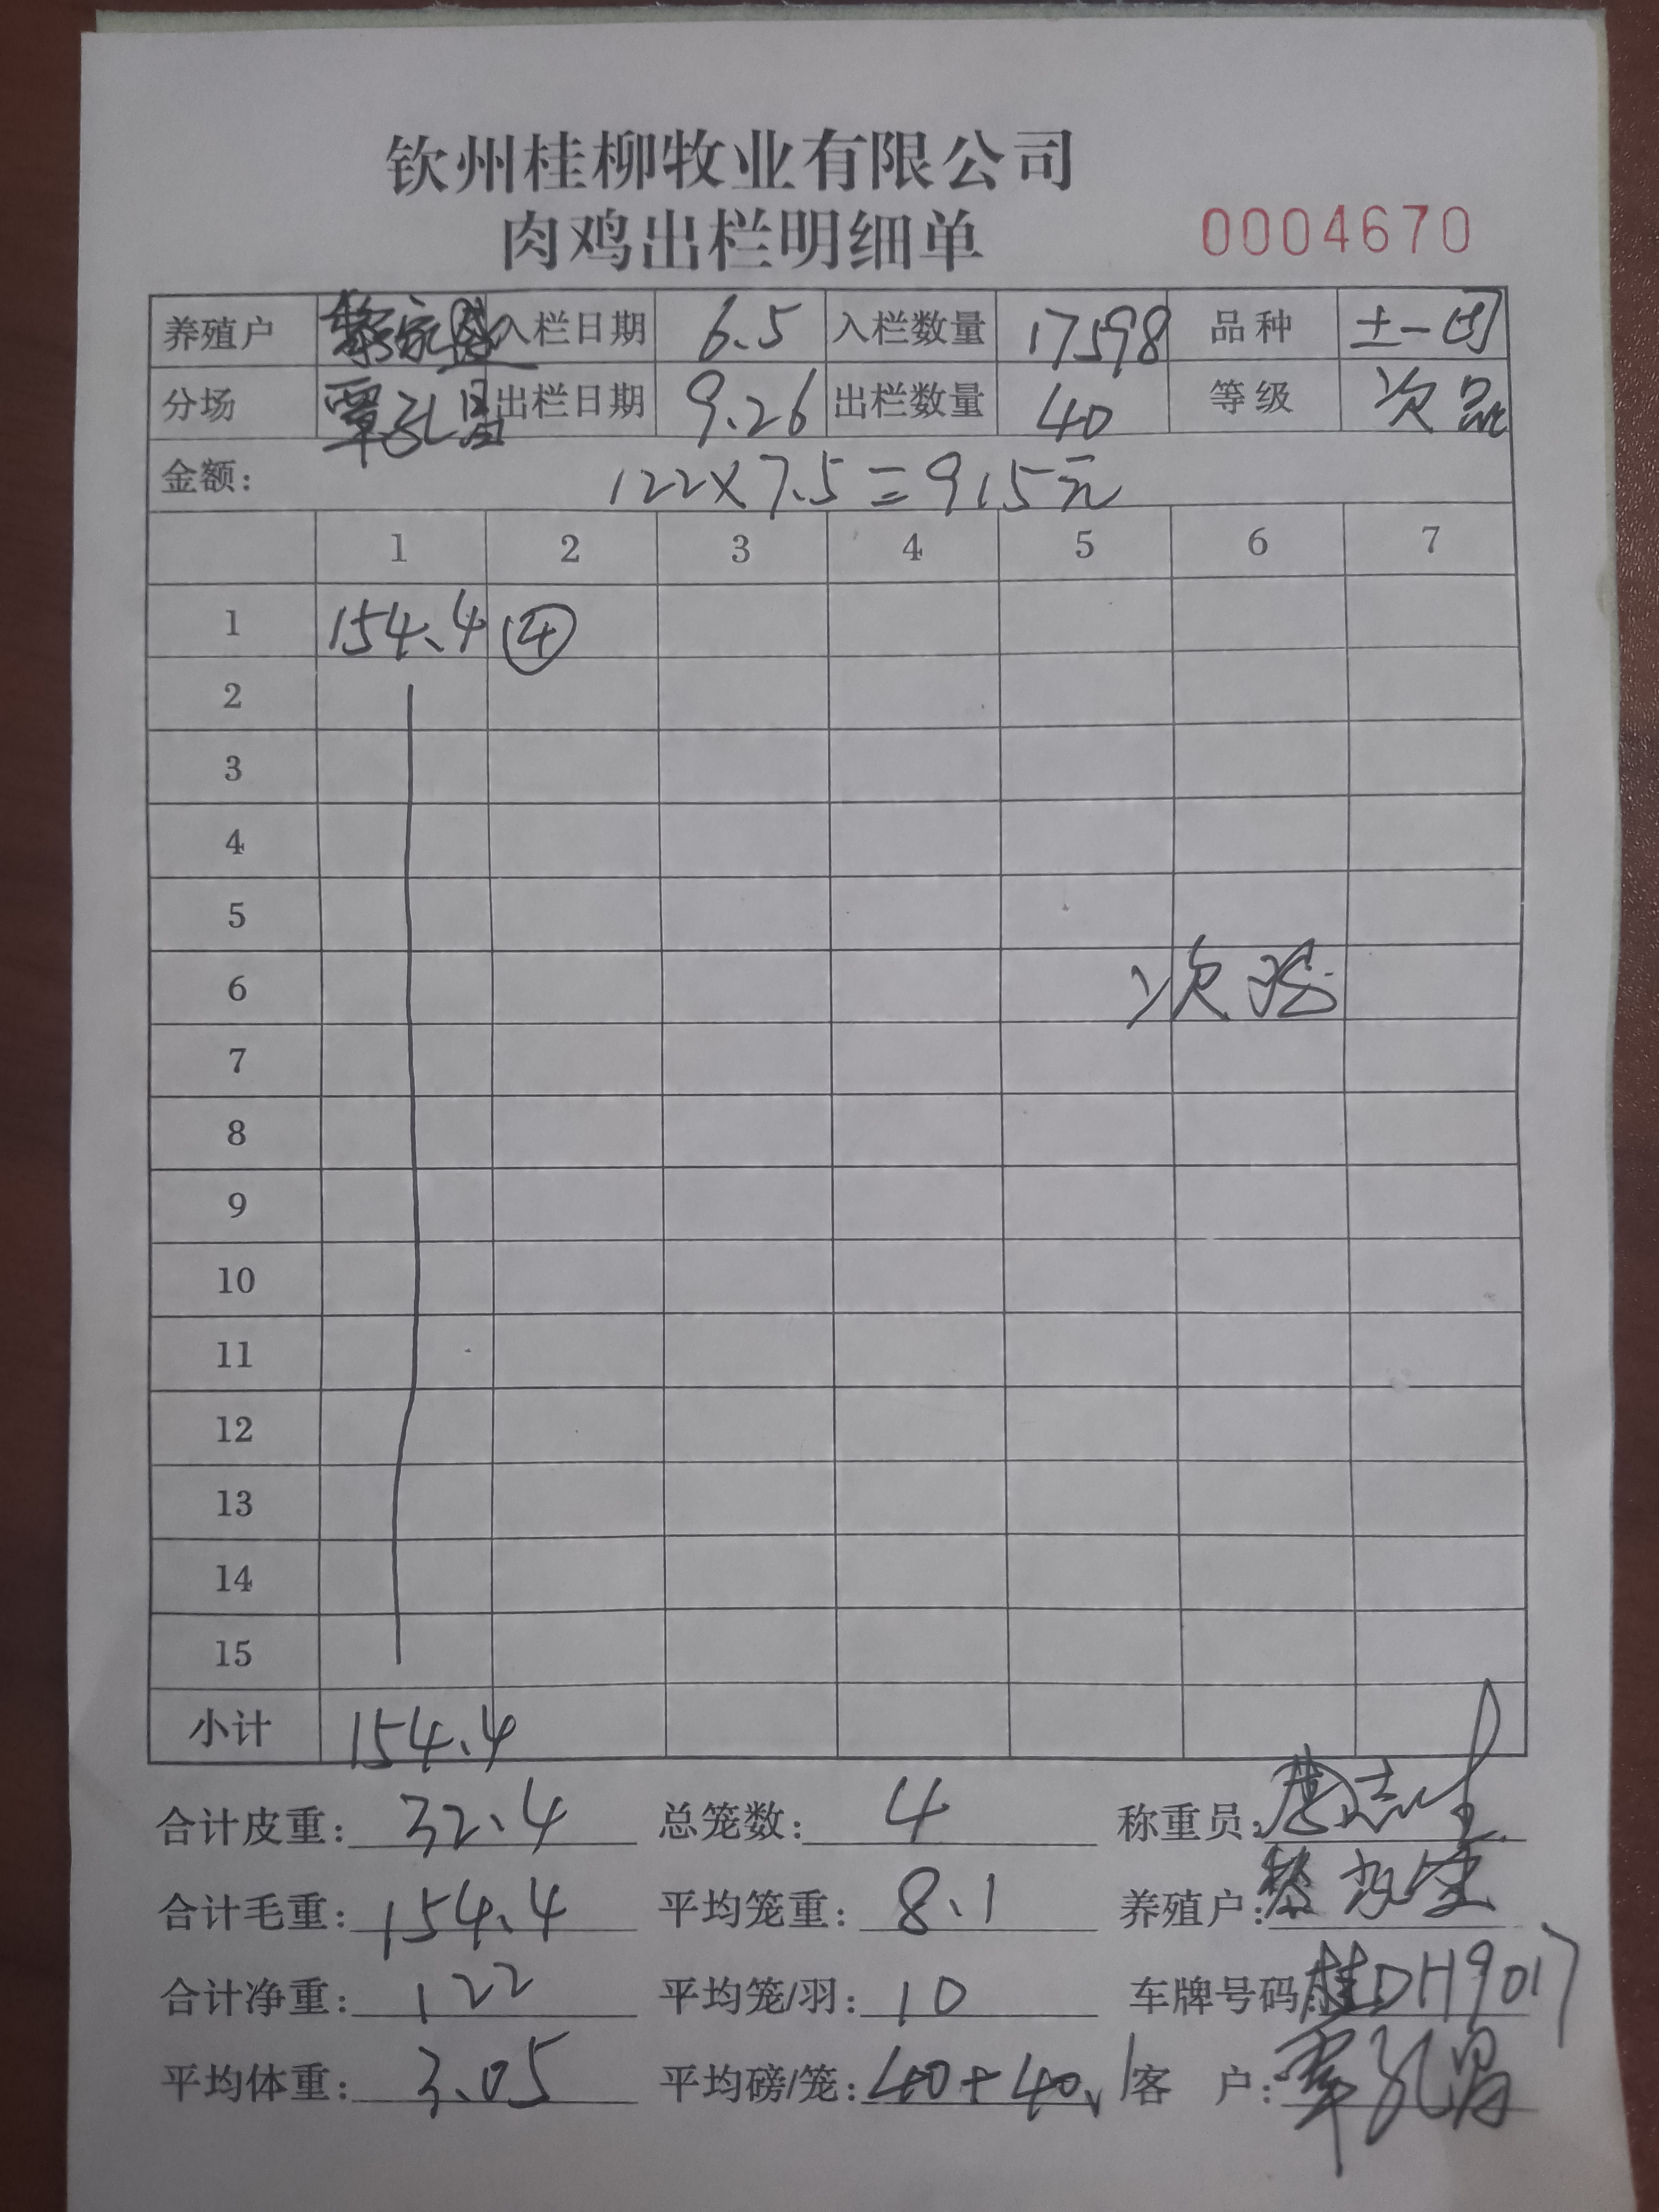 钦州桂柳牧业有限公司
肉鸡出栏明细单
0004670
养殖户 入栏日期 6.5 入栏数量 17598 品种 土一
分场 覃孔昌 出栏日期 9.26 出栏数量 40 等级 次品
金额: 122×7.5=915元
1 2 3 4 5 6 7
1 154.4 ④
2
3
4
5
6 次鸡
7
8
9
10
11
12
13
14
15
小计 154.4
合计皮重: 32.4 总笼数: 4 称重员:
合计毛重: 154.4 平均笼重: 8.1 养殖户:
合计净重: 122 平均笼/羽: 10 车牌号码 桂DH9017
平均体重: 3.05 平均磅/笼: 40+40.1 客 户: 覃孔昌